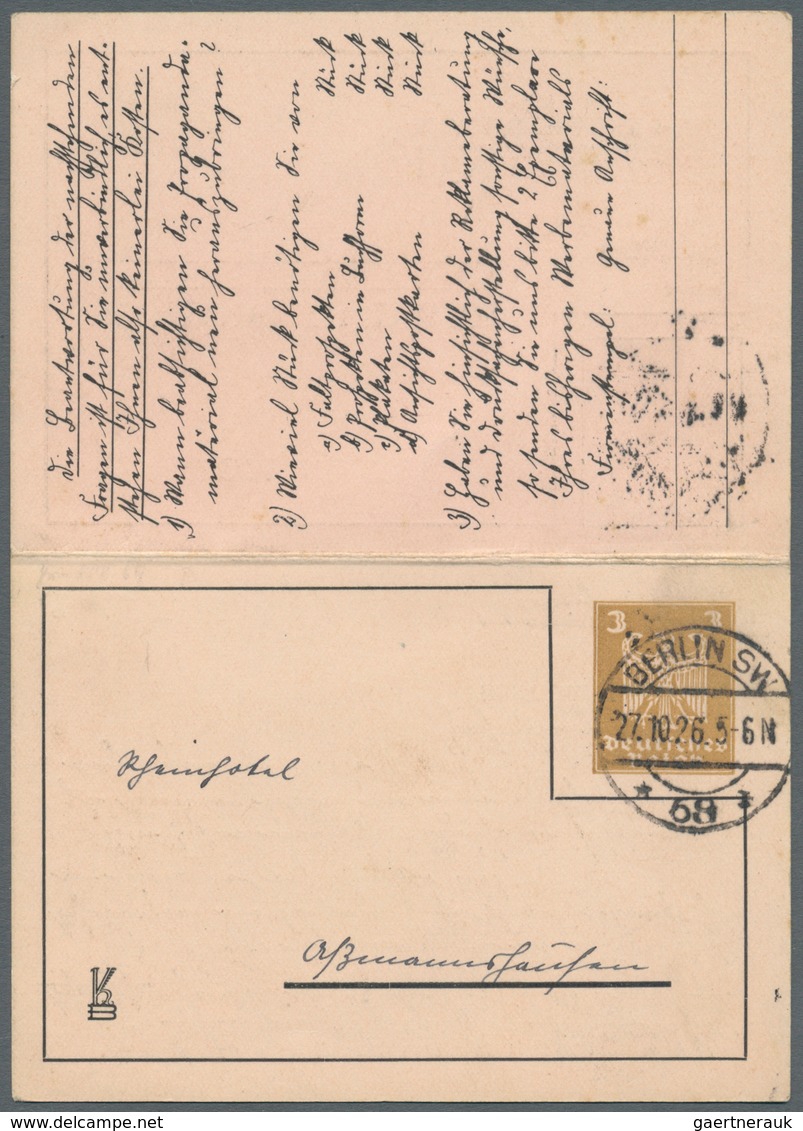 Die Beantwortung der nachstehenden
Fragen ist für Sie unverbindlich, es ent-
stehen Ihnen also keinerlei Kosten.
1) Wann beabsichtigen Sie Propaganda-
material neu herauszubringen?
2) Wieviel Stück benötigen Sie von
a) Faltprospekten Stück
b) Prospekten in Buchform Stück
c) Plakaten Stück
d) Ansichtspostkarten Stück
3) Haben Sie hinsichtlich der Reklameberatung
und Drucksachenherstellung sonstige Wünsche,
so senden Sie uns bitte 2 Exemplare
Ihres bisherigen Werbematerials
Firmenstempel: Genaue Anschrift:
3 3
Deutsches
Reich
BERLIN SW
27.10.26.5-6N
* 68
Rheinhotel
Aßmannshausen
gaertnerauk